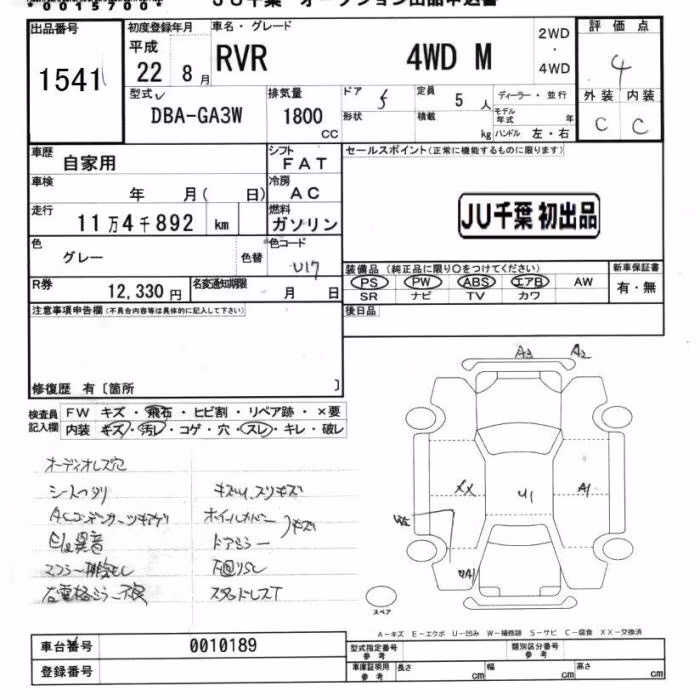 *0015700*
JU千葉 オークション出品申込書
出品番号
1541
初度登録年月
平成
22 8月
車名・グレード
RVR 4WD M
2WD
・
4WD
評価点
4
外装 内装
C C
型式
DBA-GA3W
排気量
1800
CC
ドア 5
定員 5 人
ディーラー・並行
形状
積載
kg
モデル年式 年
ハンドル 左・右
車歴 自家用
シフト FAT
セールスポイント(正常に機能するものに限ります)
車検 年 月( 日)
冷房 AC
JU千葉 初出品
走行 11万4千892 km
燃料 ガソリン
色 グレー
色替
色コード
U17
装備品(純正品に限り○をつけてください)
新車保証書
PS PW ABS エアB AW
有・無
SR ナビ TV カワ
R券 12,330円
名変通知期限 月 日
注意事項申告欄(不具合内容等は具体的に記入して下さい)
後日品
修復歴 有〔箇所 〕
検査員記入欄
FW キズ・飛石・ヒビ割・リペア跡・×要
内装 キズ・汚レ・コゲ・穴・スレ・キレ・破レ
A3 A2
オーディオレス穴
シートヘタリ
キズ凹、スリキズ
ACコンデンサーツキアゲ
ホイールカバー
キズ
E/g異音
ドアミラー
マフラー排気モレ
下回りSC
左電格ミラー不良
スタッドレスT
XX U1 A1
スペア
A-キズ E-エクボ U-凹み W-補修跡 S-サビ C-腐食 XX-交換済
車台番号 0010189
型式指定番号 参考
類別区分番号 参考
登録番号
車庫証明用 参考
長さ cm
幅 cm
高さ cm